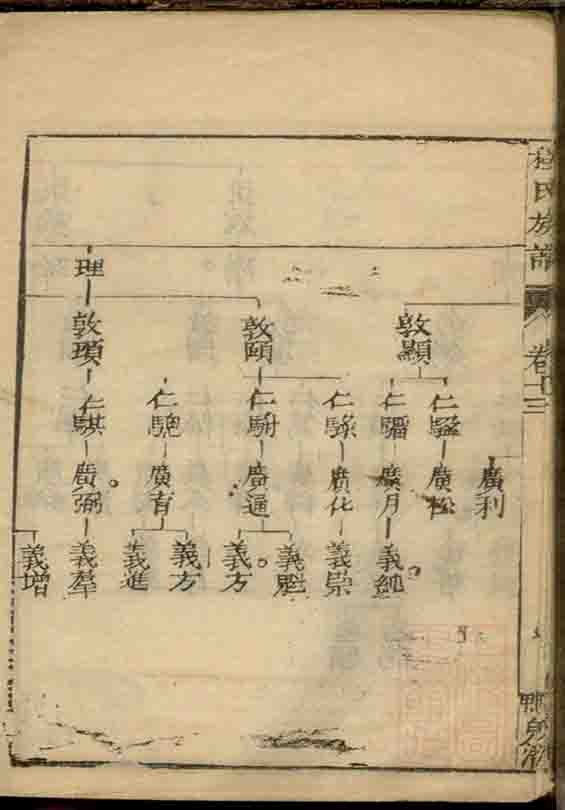 氏族譜
卷十三
廣利
敦顯
仁
廣松
仁騮
廣月
義純
敦頤
仁騄
廣化
義崇
仁駙
廣通
義魁
義方
仁
廣育
義方
義進
理
敦
仁騏
廣弼
義羣
義增